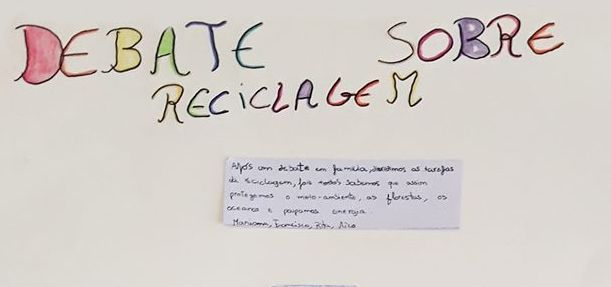 DEBATE SOBRE
RECICLAGEM
Após um debate em família, dividimos as tarefas
da reciclagem, pois todos sabemos que assim
protegemos o meio-ambiente, as florestas, os
oceanos e poupamos energia.
Mariana, Francisco, Rita,